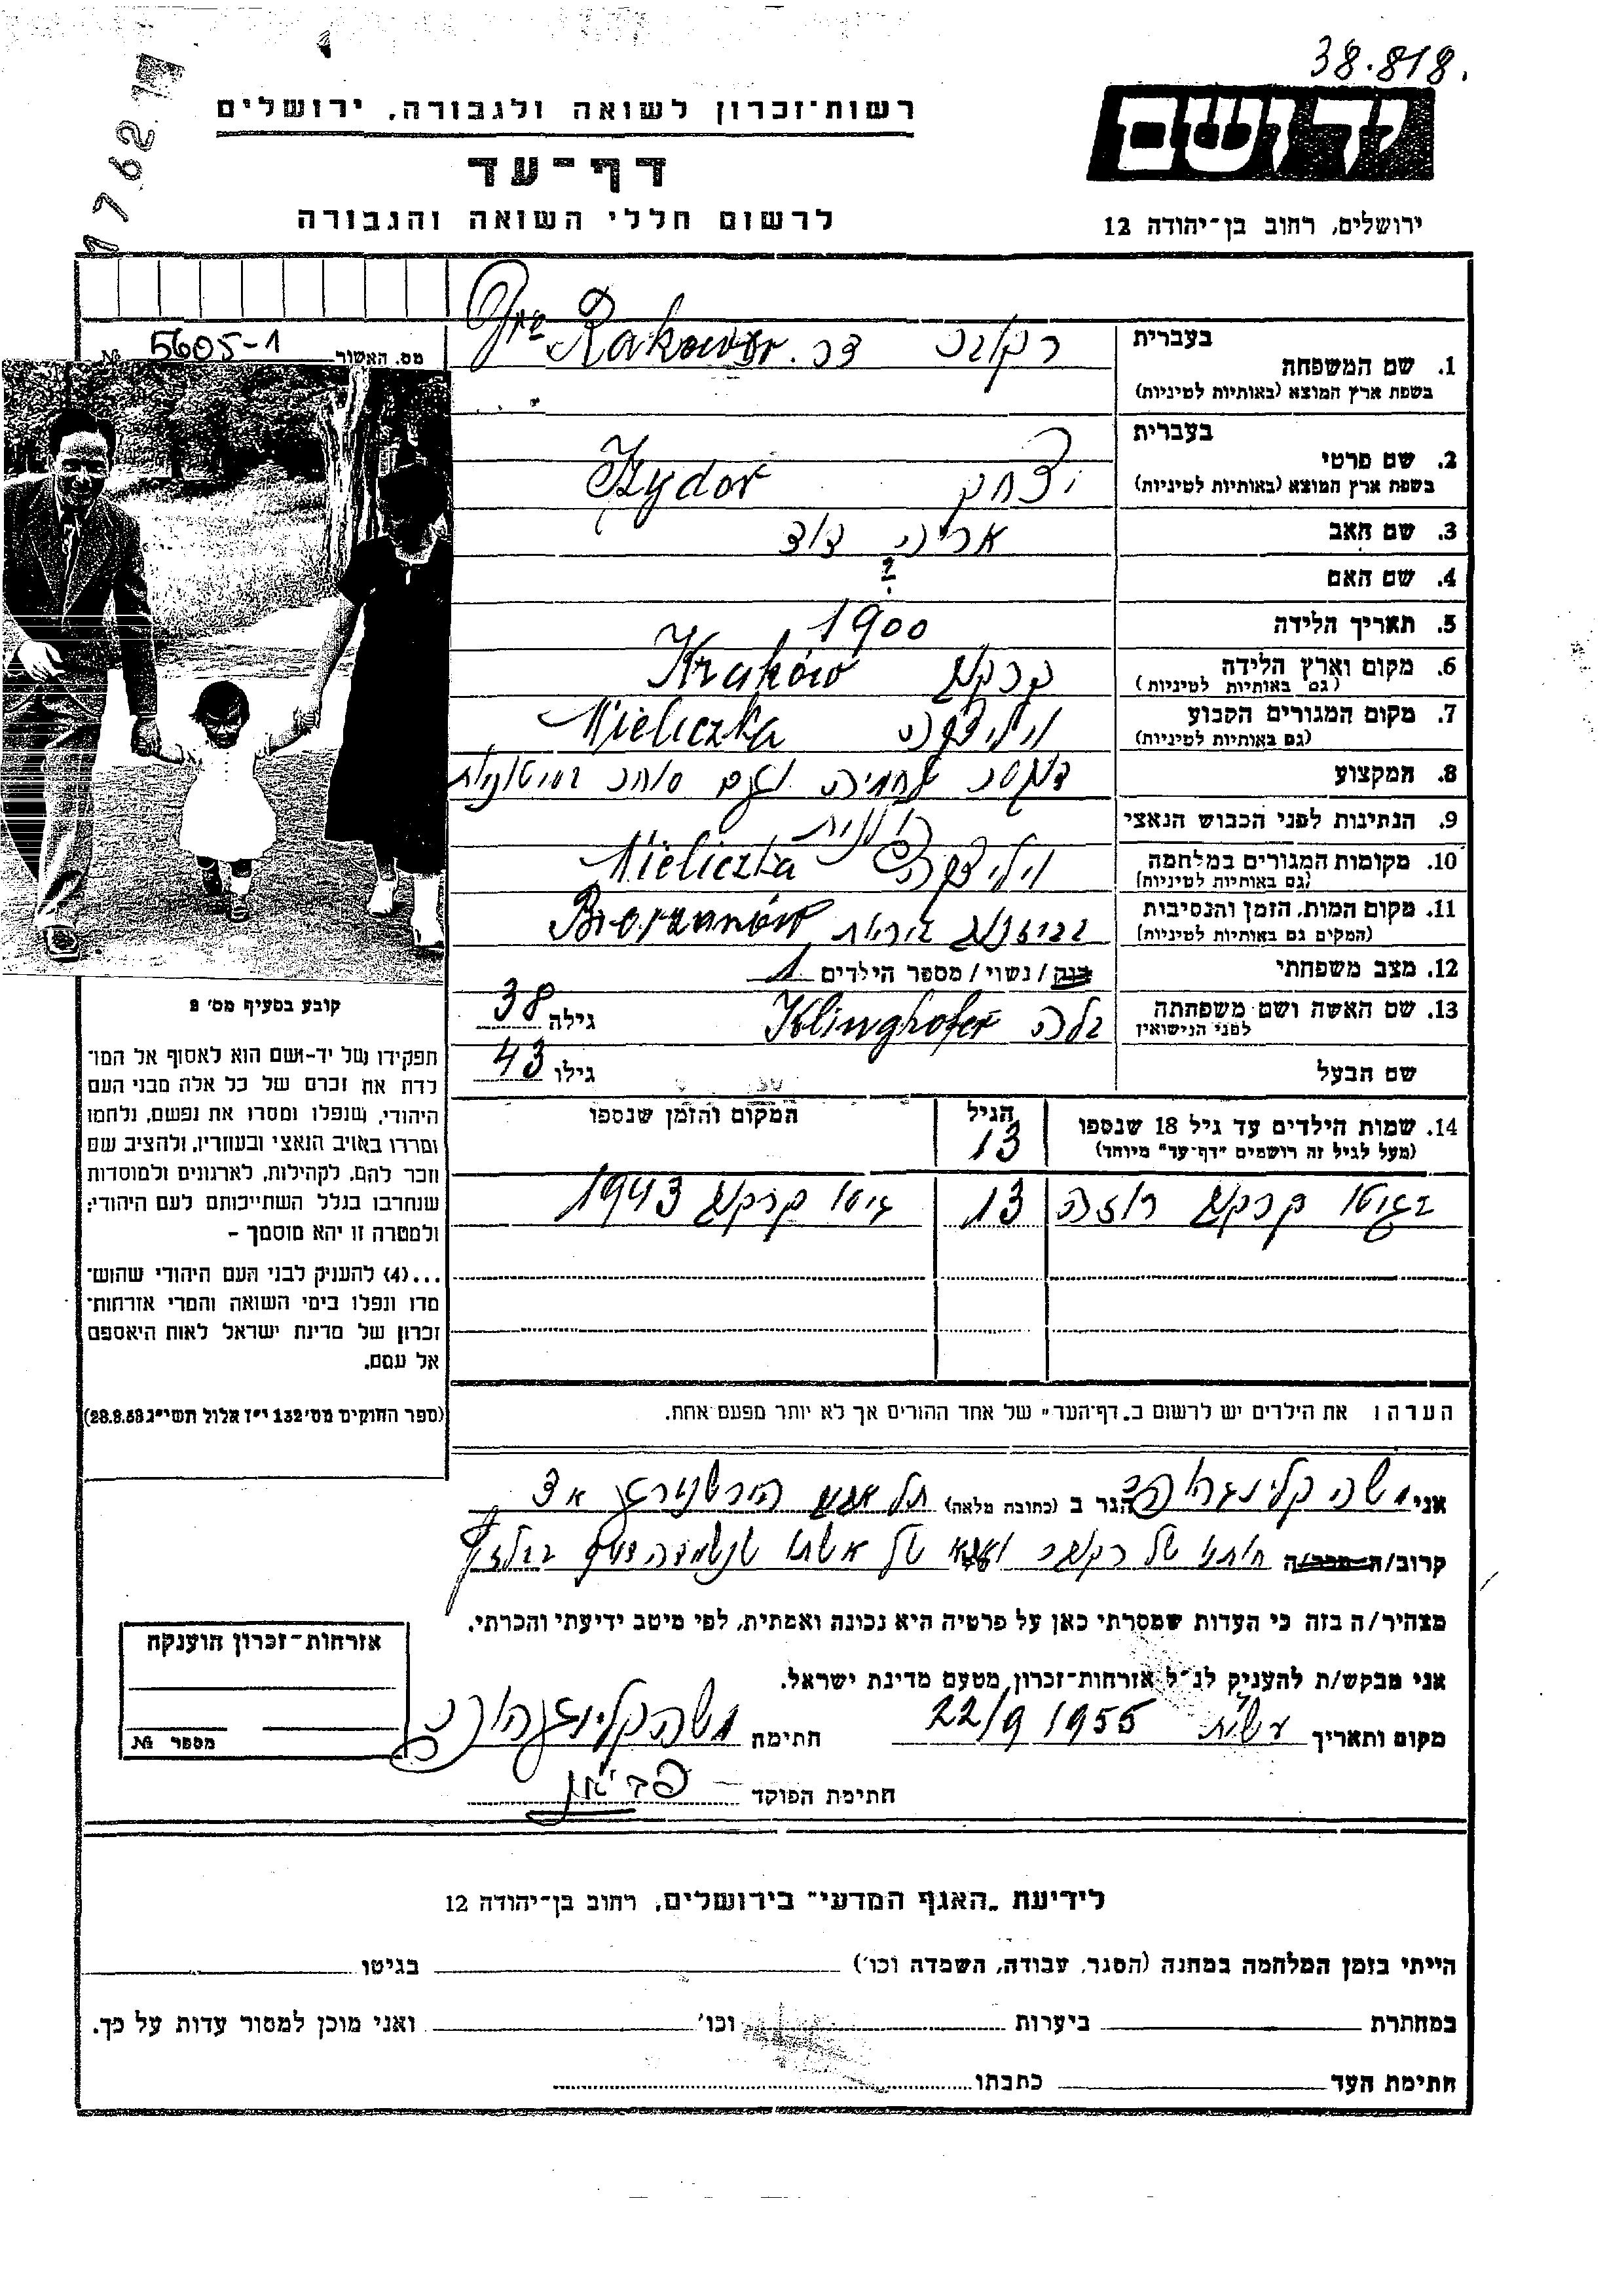 38.818.
רשות-זכרון לשואה ולגבורה, ירושלים
יד ושם
דף-עד
לרשום חללי השואה והגבורה
ירושלים, רחוב בן-יהודה 12
מס. האשור № 5605-1
בעברית
1. שם המשפחה רקובר דר. Rakower
בשפת ארץ המוצא (באותיות לטיניות)
בעברית
2. שם פרטי
בשפת ארץ המוצא (באותיות לטיניות) יצחק Izydor
3. שם האב אריה דוד
4. שם האם ?
5. תאריך הלידה 1900
6. מקום וארץ הלידה קרקוב Kraków
(גם באותיות לטיניות)
7. מקום המגורים הקבוע ויליצקה Wieliczka
(גם באותיות לטיניות)
8. המקצוע דוקטור לחמיה וגם סוחר
9. הנתינות לפני הכבוש הנאצי פולנית
10. מקומות המגורים במלחמה ויליצקה Wieliczka
(גם באותיות לטיניות)
11. מקום המות, הזמן והנסיבות
(המקום גם באותיות לטיניות)
12. מצב משפחתי רוק / נשוי / מספר הילדים 1
13. שם האשה ושם משפחתה Klinghofer גילה 38
לפני הנישואין
שם הבעל גילו 43
14. שמות הילדים עד גיל 18 שנספו הגיל המקום והזמן שנספו
(מעל לגיל זה רושמים "דף-עד" מיוחד) 13
בגיטו קרקוב רוזה 13 גיטו קרקוב 1943
קובע בסעיף מס' 2
תפקידו של יד-ושם הוא לאסוף אל המו־
לדת את זכרם של כל אלה מבני העם
היהודי, שנפלו ומסרו את נפשם, נלחמו
ומרדו באויב הנאצי ובעוזריו, ולהציב שם
וזכר להם, לקהילות, לארגונים ולמוסדות
שנחרבו בגלל השתייכותם לעם היהודי;
ולמטרה זו יהא מוסמך –
...(4) להעניק לבני העם היהודי שהוש־
מדו ונפלו בימי השואה והמרי אזרחות־
זכרון של מדינת ישראל לאות היאספם
אל עמם.
(ספר החוקים מס' 132 י"ז אלול תשי"ג 28.8.53)
הערה: את הילדים יש לרשום ב"דף-העד" של אחד ההורים אך לא יותר מפעם אחת.
אני משה קלינגהופר הגר ב (כתובת מלאה) תל אביב
קרוב/ה חותנו של רקובר ואבא של אשתו
מצהיר/ה בזה כי העדות שמסרתי כאן על פרטיה היא נכונה ואמתית, לפי מיטב ידיעתי והכרתי.
אני מבקש/ת להעניק לנ"ל אזרחות-זכרון מטעם מדינת ישראל.
מקום ותאריך 22/9 1955 חתימה משה קלינגהופר
חתימת הפוקד
אזרחות-זכרון הוענקה
מספר №
לידיעת "האגף המדעי" בירושלים, רחוב בן-יהודה 12
הייתי בזמן המלחמה במחנה (הסגר, עבודה, השמדה וכו') בגיטו
במחתרת ביערות וכו' ואני מוכן למסור עדות על כך.
חתימת העד כתבתו